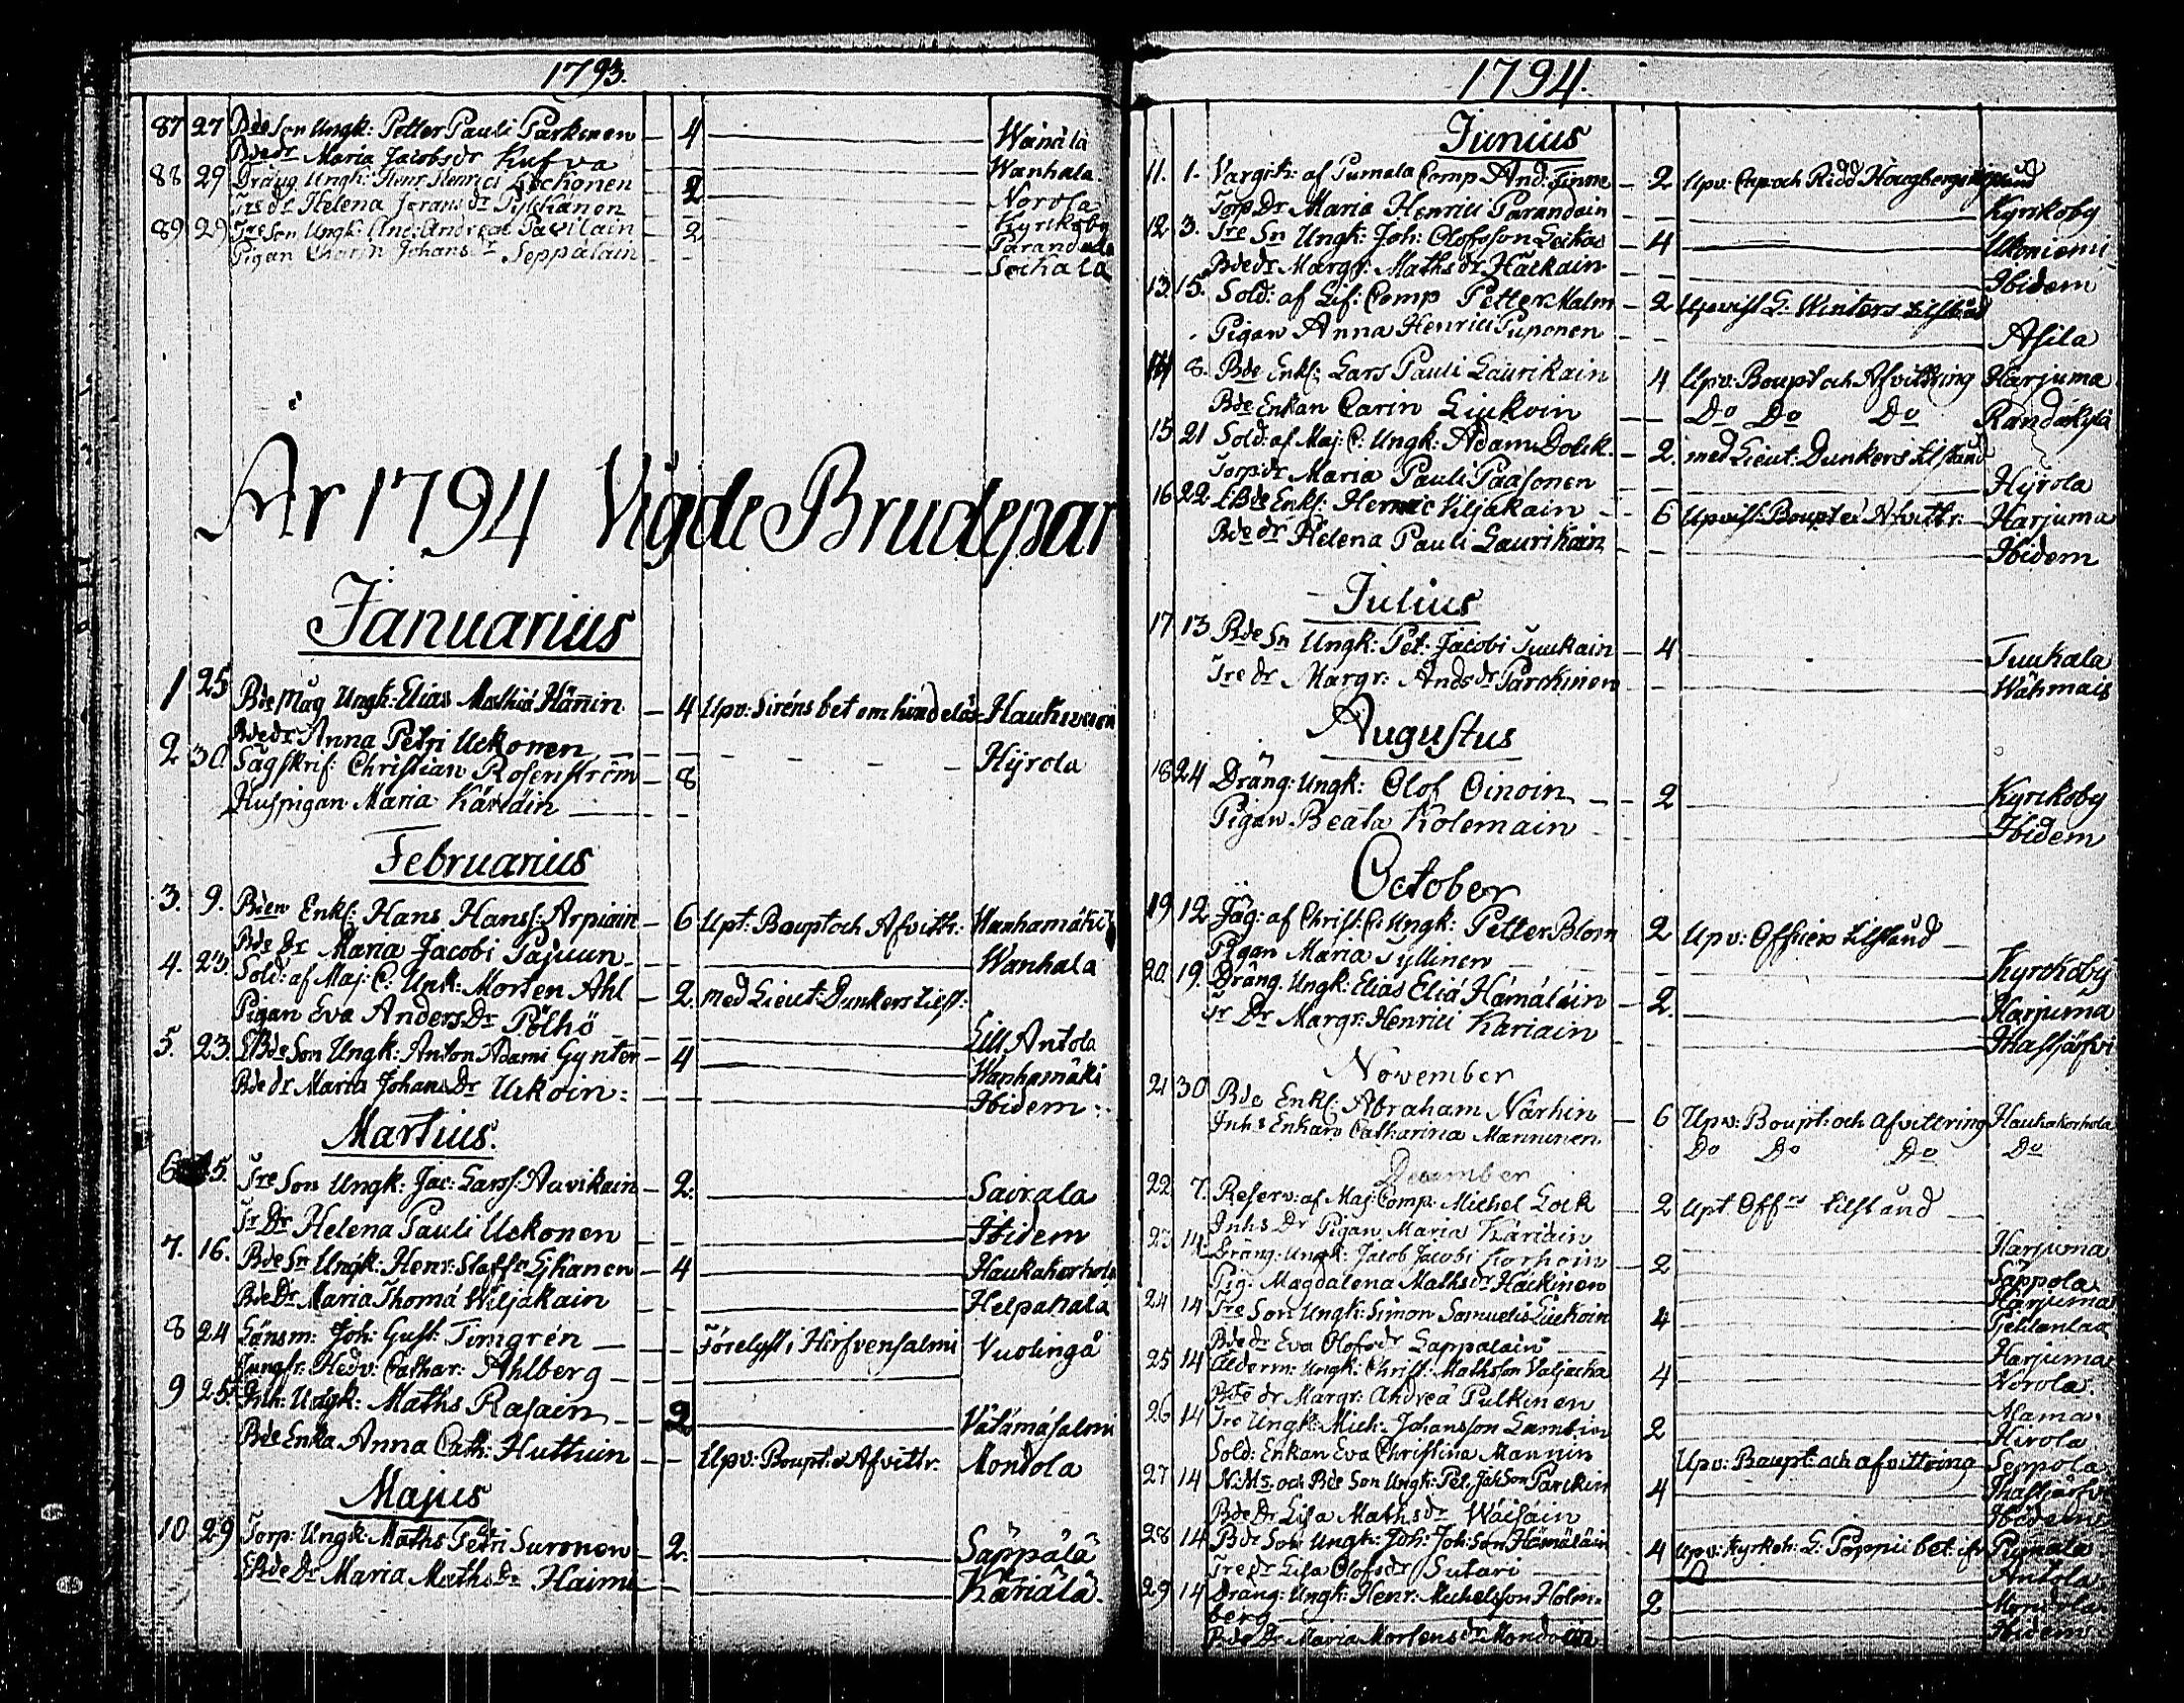 1793.
87 27 Bde Son Ungk: Petter Pauli Parkonen — 4 — Wänälä
Bde dr Maria Jacobsdr Kufva — Wanhala
88 29 Dräng Ungk: Henr. Henrici Lockonen — 2 — Norola
Tredr Helena Jöransdr Pylckänen — Kyrikoby
89 29 Tre Son Ungk: And: Andreae Pavilain — 2 — Parandala
Pigan Charin Johansdr Seppäläin — Sockala
År 1794 Vigde Brudepar
Januarius
1 25 Bde Måg Ungk: Elias Mathiæ Hännin — 4 Upv: Siréns bet om hindelös- Haukivuori
Bdedr Anna Petri Uckonen
2 30 Sågskrif: Christian Rosenström — 8 — Hÿrola
Huspigan Maria Käriäin
Februarius
3. 9. Bden Enkl: Hans Hanss: Arpiain — 6 Upt: Boupt och Afvittr: Wanhamäki
Bde Dr Maria Jacobi Pajuun — Wanhala
4. 23. Sold: af Maj: C: Unk: Morten Ahl — 2. med Lieut: Dunkers tilst:
Pigan Eva AndersDr Pölhö — Lill Antola
5. 23. Bde Son Ungk: Anton Adami Gynter — 4 — Wanhamäki
Bde dr Maria JohansDr Uckoin: — Ibidem:
Martius.
6 15. Tre Son Ungk: Jac: Larss: Auvikain — 2. — Sairala
Tr Dr Helena Pauli Uckonen — Ibidem
7. 16. Bde Sn Ungk: Henr: Staffn Ghanen — 4 — Haukakorhola
BdeDr Maria Thomæ Wiljakain — Helpahala
8 24 Länsm: Joh: Gust: Timgrén — Förelyst i Hirfvensalmi Vuolinga
Jungfr: Hedv: Cathar: Ahlberg
9 25. Inh: Ungk: Maths Rasain — 2 — Vätämäsalmi
Bde Enka Anna Cath: Huttuin — Upv: Boupt: & Afvittr: Montola
Majus
10 29 Torp: Ungk: Maths Petri Suronen — 2. — Säppälä
Bde Dr Maria MathsDr Haimi — Käriälä.
1794.
Junius
11. 1. Vargit: af Pumala Comp And: Finne — 2 Upv: Cap: och Ridd Höugbergs tilstånd
Torp Dr Maria Henrici Parandain — Kyrikoby
12 3. Tre Sn Ungk: Joh: Olofsson Leikas — 4 — Ukoniemi
Bdedr Margr: Mathsdr Häckain — Ibidem
13. 15. Sold: af Lif: Comp Petter Malm — 2 Upvist L: Winters tilstånd
Pigan Anna Henrici Puponen — Asila
14 8. Bde Enkl: Lars Pauli Laurikain 4 Upv: Boupt och Afvittring Harjuma
Bde Enkan Carin Liukoin — Do Do Do Randakylä
15 21 Sold: af Maj: C: Ungk: Adam Dolck. — 2. med Lieut: Dunkers tilstånd
Torp:dr Maria Pauli Paasonen — Hÿrola
16 22 Bde Enkl: Henric Viljakain — 6 Upvist: Boupt & Afvittr: Harjuma
Bde dr Helena Pauli Laurikain — Ibidem
Julius
17 13 Bde Sn Ungk: Pet: Jacobi Tuukain — 4 — Tuukala
Tre dr Margr: Andsdr Parckinen — Wähmais
Augustus
18 24 Dräng: Ungk: Olof Oinoin — 2 — Kyrckoby
Pigan Beata Kolemain — Ibidem
October
19 12 Jäg: af Christ: C: Ungk: Petter Blom 2 Upv: Officers tilstånd —
Pigan Maria Tyllinen — Kyrckoby
20. 19. Dräng. Ungk: Elias Eliæ Hämäläin — 2. — Harjuma
Tr Dr Margr: Henrici Käriain — Ihastjärfvi
November
21 30 Bde Enkl: Abraham Närhin — 6 Upv: Boupt: och Afvittring Haukakorhola
Inhs Enkan Catharina Manninen. Do Do Do Do
December
22 7. Reserv: af Maj: Comp: Michel Lock — 2 Upt Offrs tilstånd —
Inhs Dr Pigan Maria Käriäin — Harjuma
23 14 Dräng: Ungk: Jacob Jacobi Korhoin — 2 — Säppola
Pig: Magdalena Mathsdr Häckinen — Harjuma
24 14 Tre Son Ungk: Simon Samuelis Liukoin 4
Bde dr Eva Olofsdr Lappalain — Harjuma
25 14 Alderm: Ungk: Christ: Mathsson Valjacka 4 — Norola.
Bde dr Margr: Andreæ Pulkinen — Mama
26 14 Tre Ungk: Mich: Johansson Lambin 2 — Hirola
Sold: Enkan Eva Christina Mannin Upv: Boupt: och afvittring Seppola
27 14 N:Ms: och Bde Son Ungk: Pet: Jac:Son Parckin 4 — Ihastjärfvi
Bde Dr Lisa Mathsdr Wäisäin — Ibidem
28 14 Bde Son Ungk: Joh: Joh:Son Hämäläin 4 Upv: Kyrkoh: L: Poppii bet: ifr Pumala
Tre dr Lisa Olofsdr Sutari — Antola
29 14 Dräng: Ungk: Henr: Michelsson Holm- 2 — Montola
berg
Bde Dr Maria Mortensdr Mondoin — Ibidem